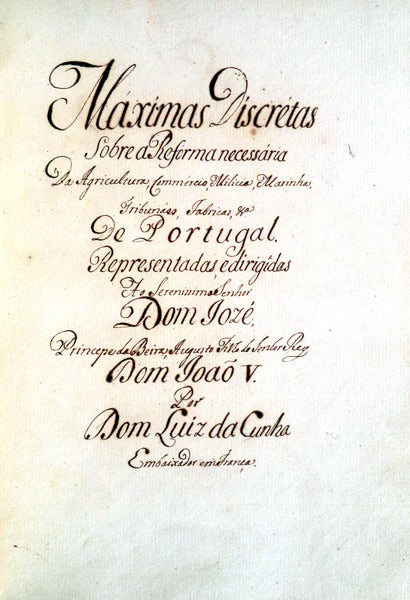 Máximas Discrétas
Sobre a Reforma necessária
Da Agricultura, Commércio, Milicia, Marinha,
Tribunáes, Fabricas, &a
De Portugal.
Representadas, e dirigidas
Ao Sereníssimo Senhor
Dom Jozé,
Principe da Beira, Augusto Filho do Senhor Rey
Dom Joaõ V.
Por
Dom Luiz da Cunha
Embaixador em França.